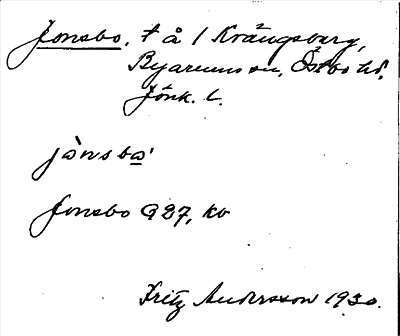 Jonsbo, t å / Krängsberg,
Byarums sn, Östbo hd,
Jönk. l.
jònsbo'
Jonsbo 927, ko
Fritz Andersson 1930.